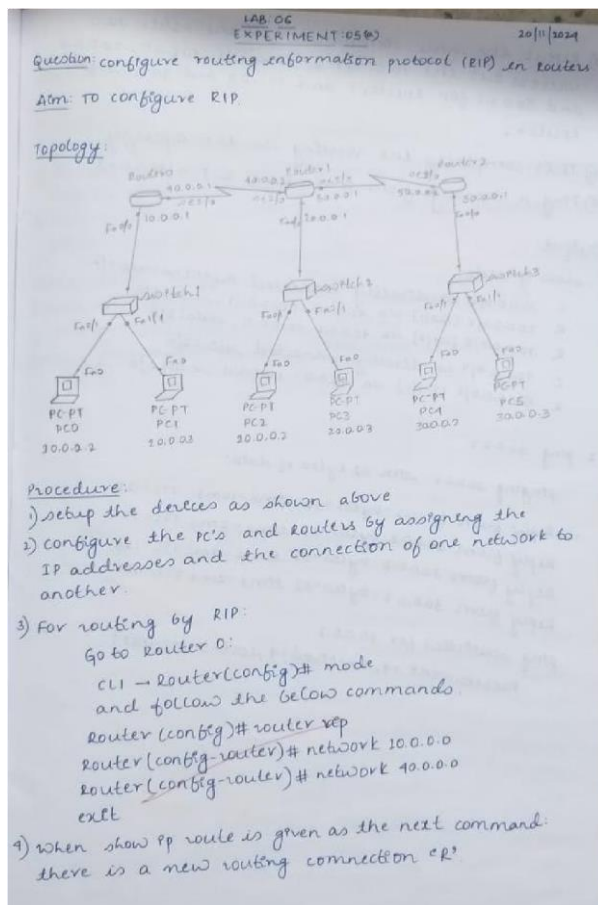 LAB: 06
EXPERIMENT: 05(a)
20/11/2024
Question: configure routing information protocol (RIP) in routers
Aim: To configure RIP.
Topology:
Router0
Router1
Router2
40.0.0.1
se2/0
10.0.0.1
50.0.0.1
switch1
switch3
Fa0/1
Fa1/1
Fa0
Fa0
Fa0
Fa0
PC-PT
PC0
PC-PT
PC1
PC-PT
PC2
PC-PT
PC3
PC-PT
PC4
PC-PT
PC5
20.0.0.2
30.0.0.3
Procedure:
1) setup the devices as shown above
2) configure the PC's and Routers by assigning the
IP addresses and the connection of one network to
another.
3) For routing by RIP:
Go to Router 0:
CLI → Router(config)# mode
and follow the below commands.
Router (config)# router rip
Router(config-router)# network 10.0.0.0
Router(config-router)# network 40.0.0.0
exit
4) when show ip route is given as the next command:
there is a new routing connection 'R'